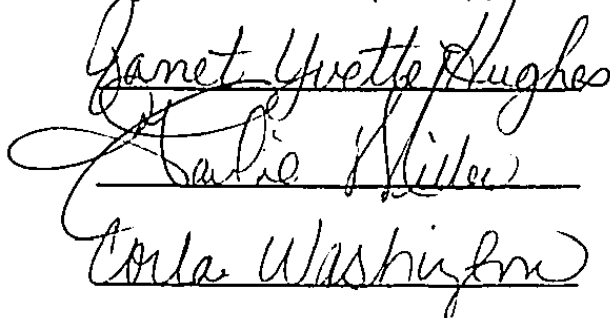 Janet Yvette Hughes
Karlie Miller
Corla Washington